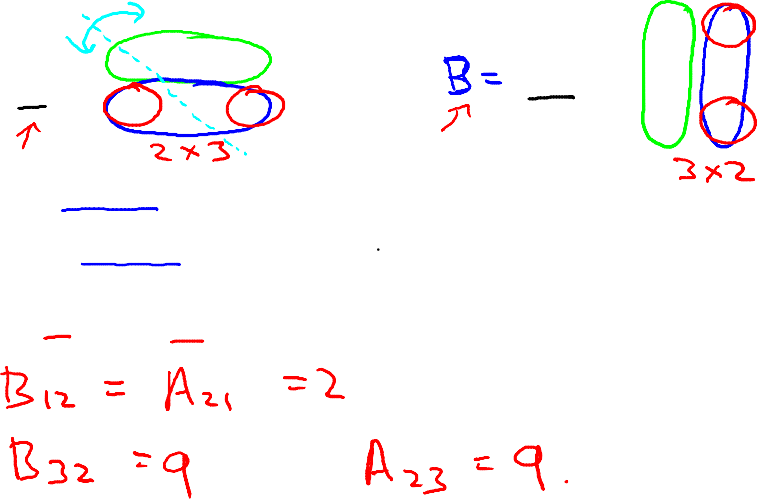 B =
2 × 3
3 × 2
B₁₂ = A₂₁ = 2
B₃₂ = 9 A₂₃ = 9.